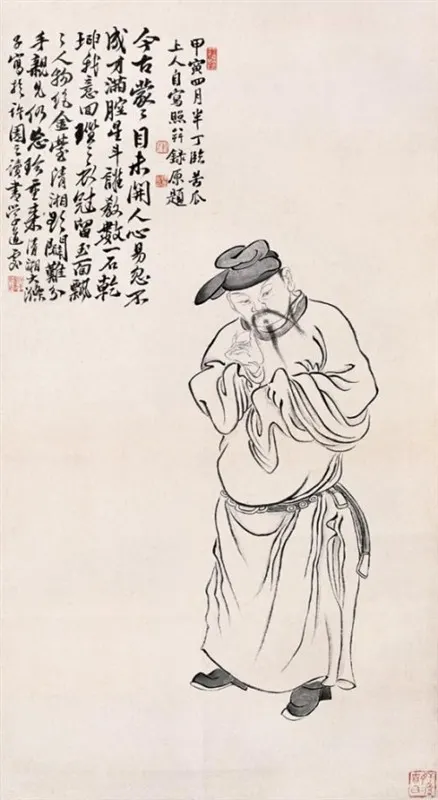 甲寅四月半丁臨苦瓜
上人自寫照并錄原題
今古蒙〻目未開人心易忽不
成才滿腔星斗誰教數一石乾
坤我意回〻衣冠留玉面飄
〻人物絕金清湘影難分
手親見仍珍重來清湘大滌
子寫於許園之讀書學道處